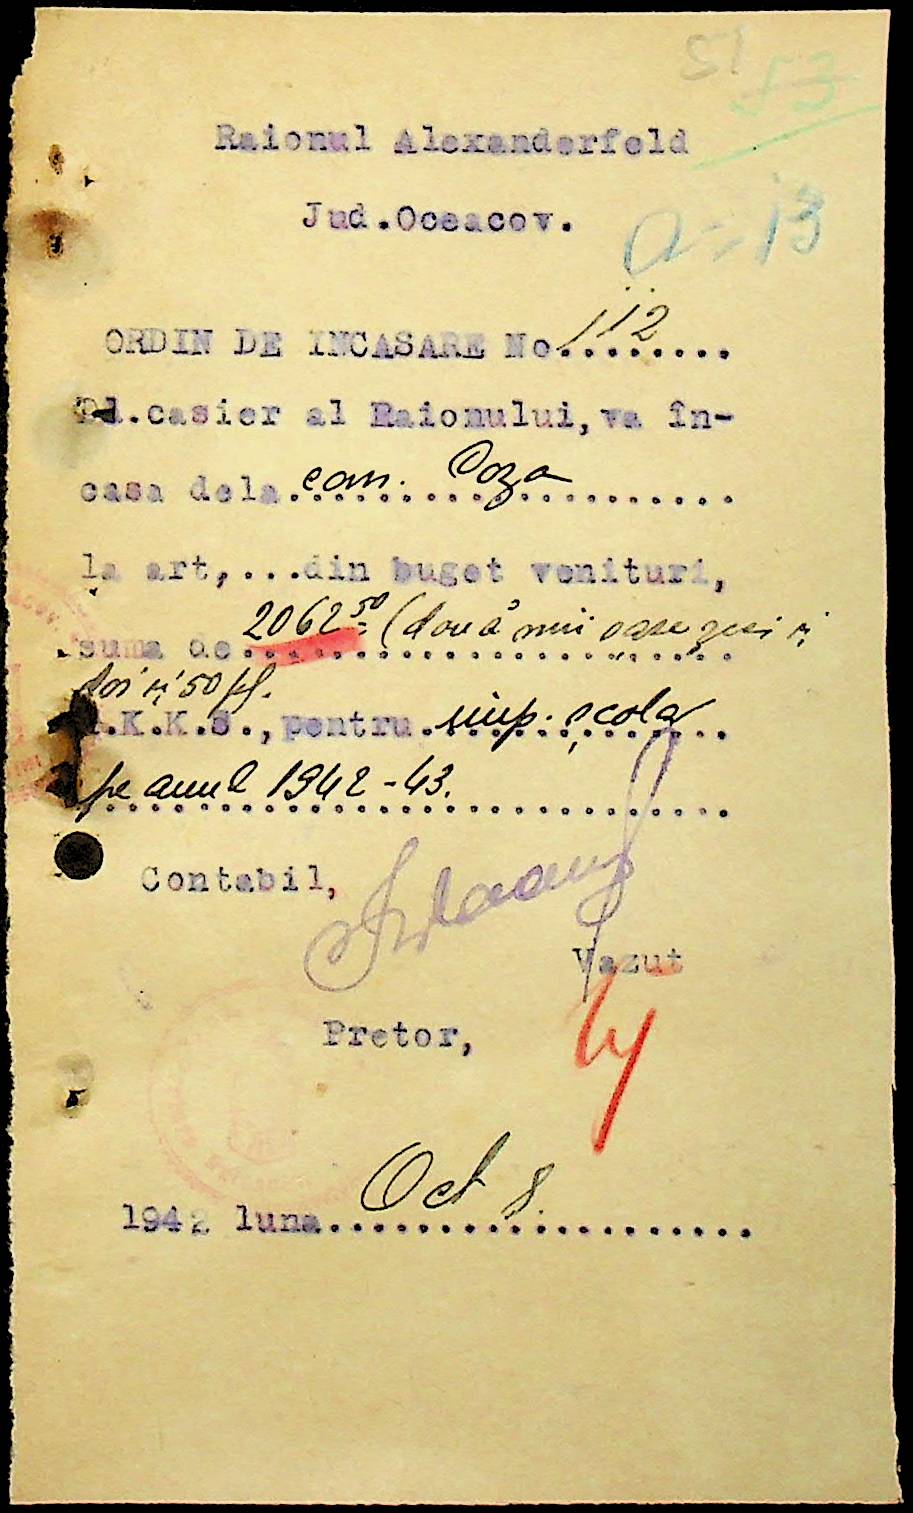 51
53
Raionul Alexanderfeld
Jud.Oceacov.
a=13
ORDIN DE INCASARE No 112........
Dl.casier al Raionului,va în-
casa dela.com. Poza....................
la art,...din buget venituri,
suma de 2062 50 (două mii șase zeci și
doi și 50 pf.
R.K.K.S.,pentru.imp. școlar
pe anul 1942-43.
Contabil,
Vazut
Pretor,
1942 luna Oct 8